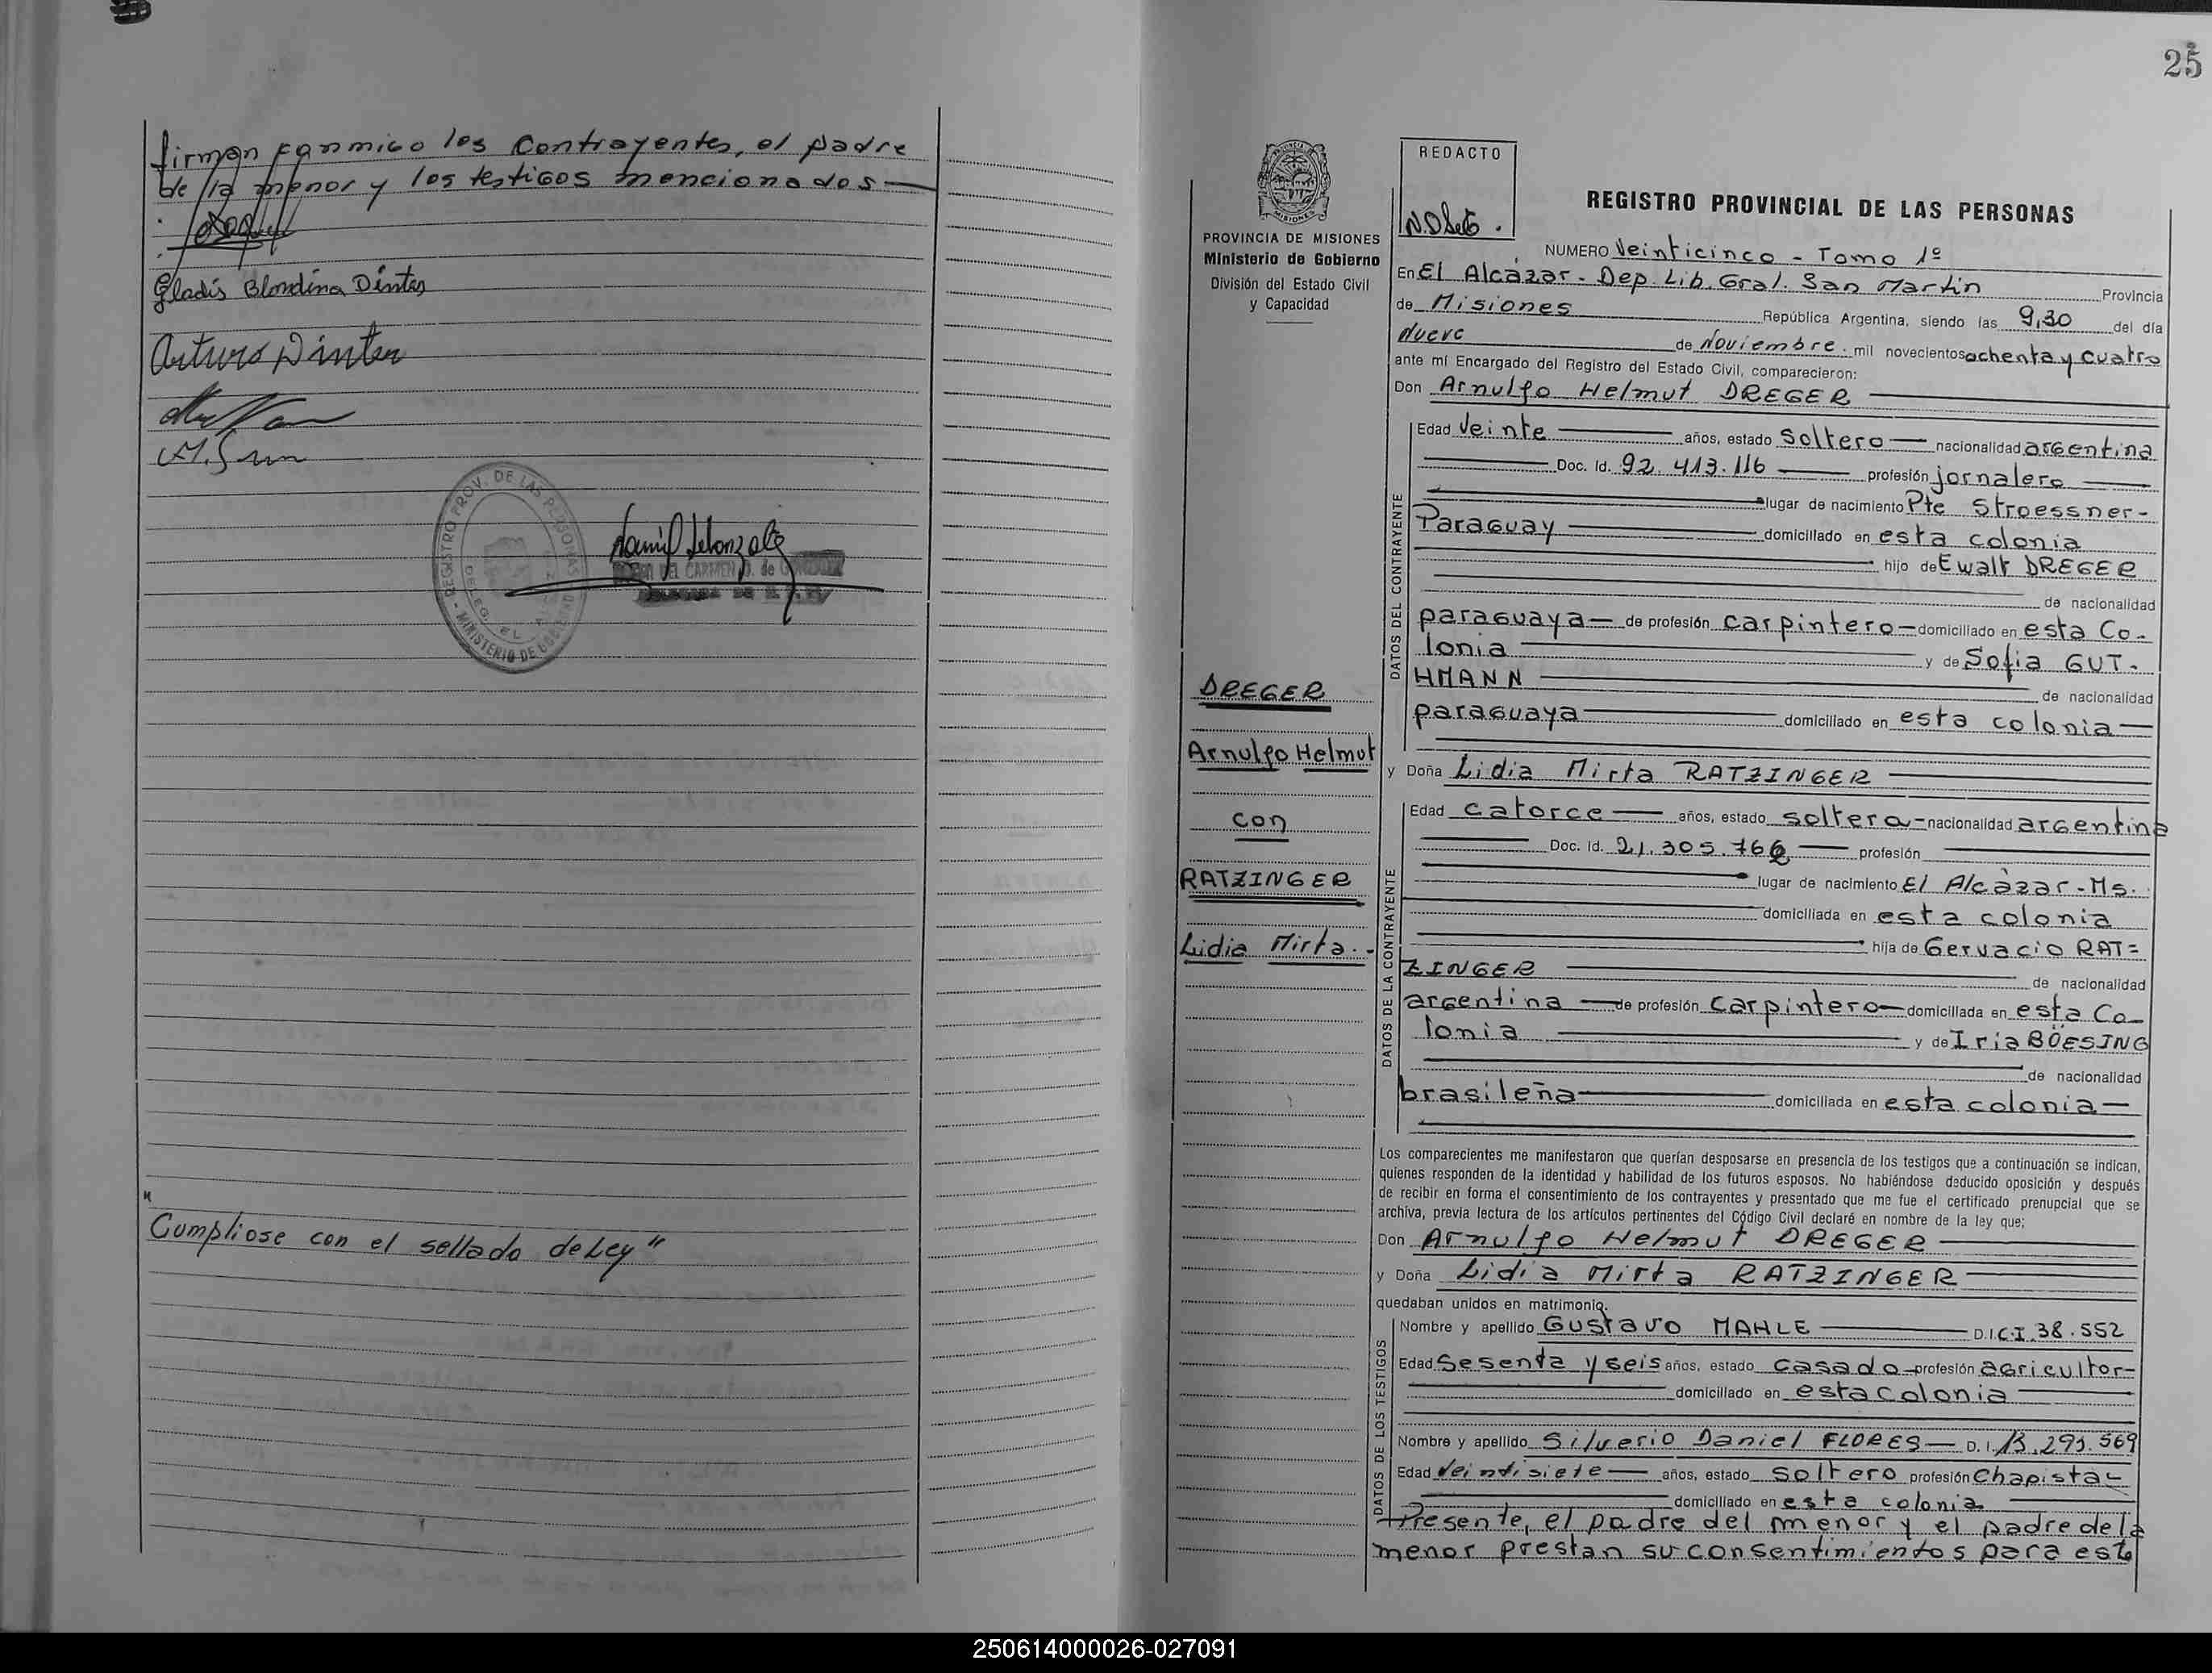 firman conmigo los contrayentes, el padre
de la menor y los testigos mencionados
Gladis Blondina Dinter
Arturo Dinter
REGISTRO PROV. DE LAS PERSONAS - MINISTERIO DE GOBIERNO
DELEG. EL
DEL CARMEN D. de GONZALEZ
DELEGADA DE
"
Cumpliose con el sellado de Ley"
25
PROVINCIA DE MISIONES
Ministerio de Gobierno
División del Estado Civil
y Capacidad
DREGER
Arnulfo Helmut
con
RATZINGER
Lidia Mirta.-
REDACTO
REGISTRO PROVINCIAL DE LAS PERSONAS
NUMERO Veinticinco - Tomo 1º
En El Alcázar - Dep. Lib. Gral. San Martin Provincia
de Misiones República Argentina, siendo las 9,30 del día
Nueve de Noviembre mil novecientos ochenta y cuatro
ante mí Encargado del Registro del Estado Civil, comparecieron:
Don Arnulfo Helmut DREGER
DATOS DEL CONTRAYENTE
Edad Veinte años, estado Soltero nacionalidad argentina
Doc. Id. 92.413.116 profesión jornalero
lugar de nacimiento Pte Stroessner-
Paraguay domiciliado en esta colonia
hijo de Ewalt DREGER
de nacionalidad
paraguaya de profesión carpintero domiciliado en esta Co-
lonia y de Sofia GUT-
HMANN de nacionalidad
paraguaya domiciliado en esta colonia
y Doña Lidia Mirta RATZINGER
DATOS DE LA CONTRAYENTE
Edad catorce años, estado soltera nacionalidad argentina
Doc. Id. 21.305.766 profesión
lugar de nacimiento El Alcàzar-Ms.
domiciliada en esta colonia
hija de Gervacio RAT=
ZINGER de nacionalidad
argentina de profesión carpintero domiciliada en esta Co-
lonia y de Iria BÖESING
de nacionalidad
brasileña domiciliada en esta colonia
Los comparecientes me manifestaron que querían desposarse en presencia de los testigos que a continuación se indican,
quienes responden de la identidad y habilidad de los futuros esposos. No habiéndose deducido oposición y después
de recibir en forma el consentimiento de los contrayentes y presentado que me fue el certificado prenupcial que se
archiva, previa lectura de los artículos pertinentes del Código Civil declaré en nombre de la ley que:
Don Arnulfo Helmut DREGER
y Doña Lidia Mirta RATZINGER
quedaban unidos en matrimonio.
DATOS DE LOS TESTIGOS
Nombre y apellido Gustavo MAHLE D.I.C.I. 38.552
Edad Sesenta y seis años, estado casado profesión agricultor-
domiciliado en esta colonia
Nombre y apellido Silverio Daniel FLORES D.I. 13.291.569
Edad Veintisiete años, estado soltero profesión chapista
domiciliado en esta colonia
Presente, el padre del menor y el padre de la
menor prestan su consentimientos para este
250614000026-027091